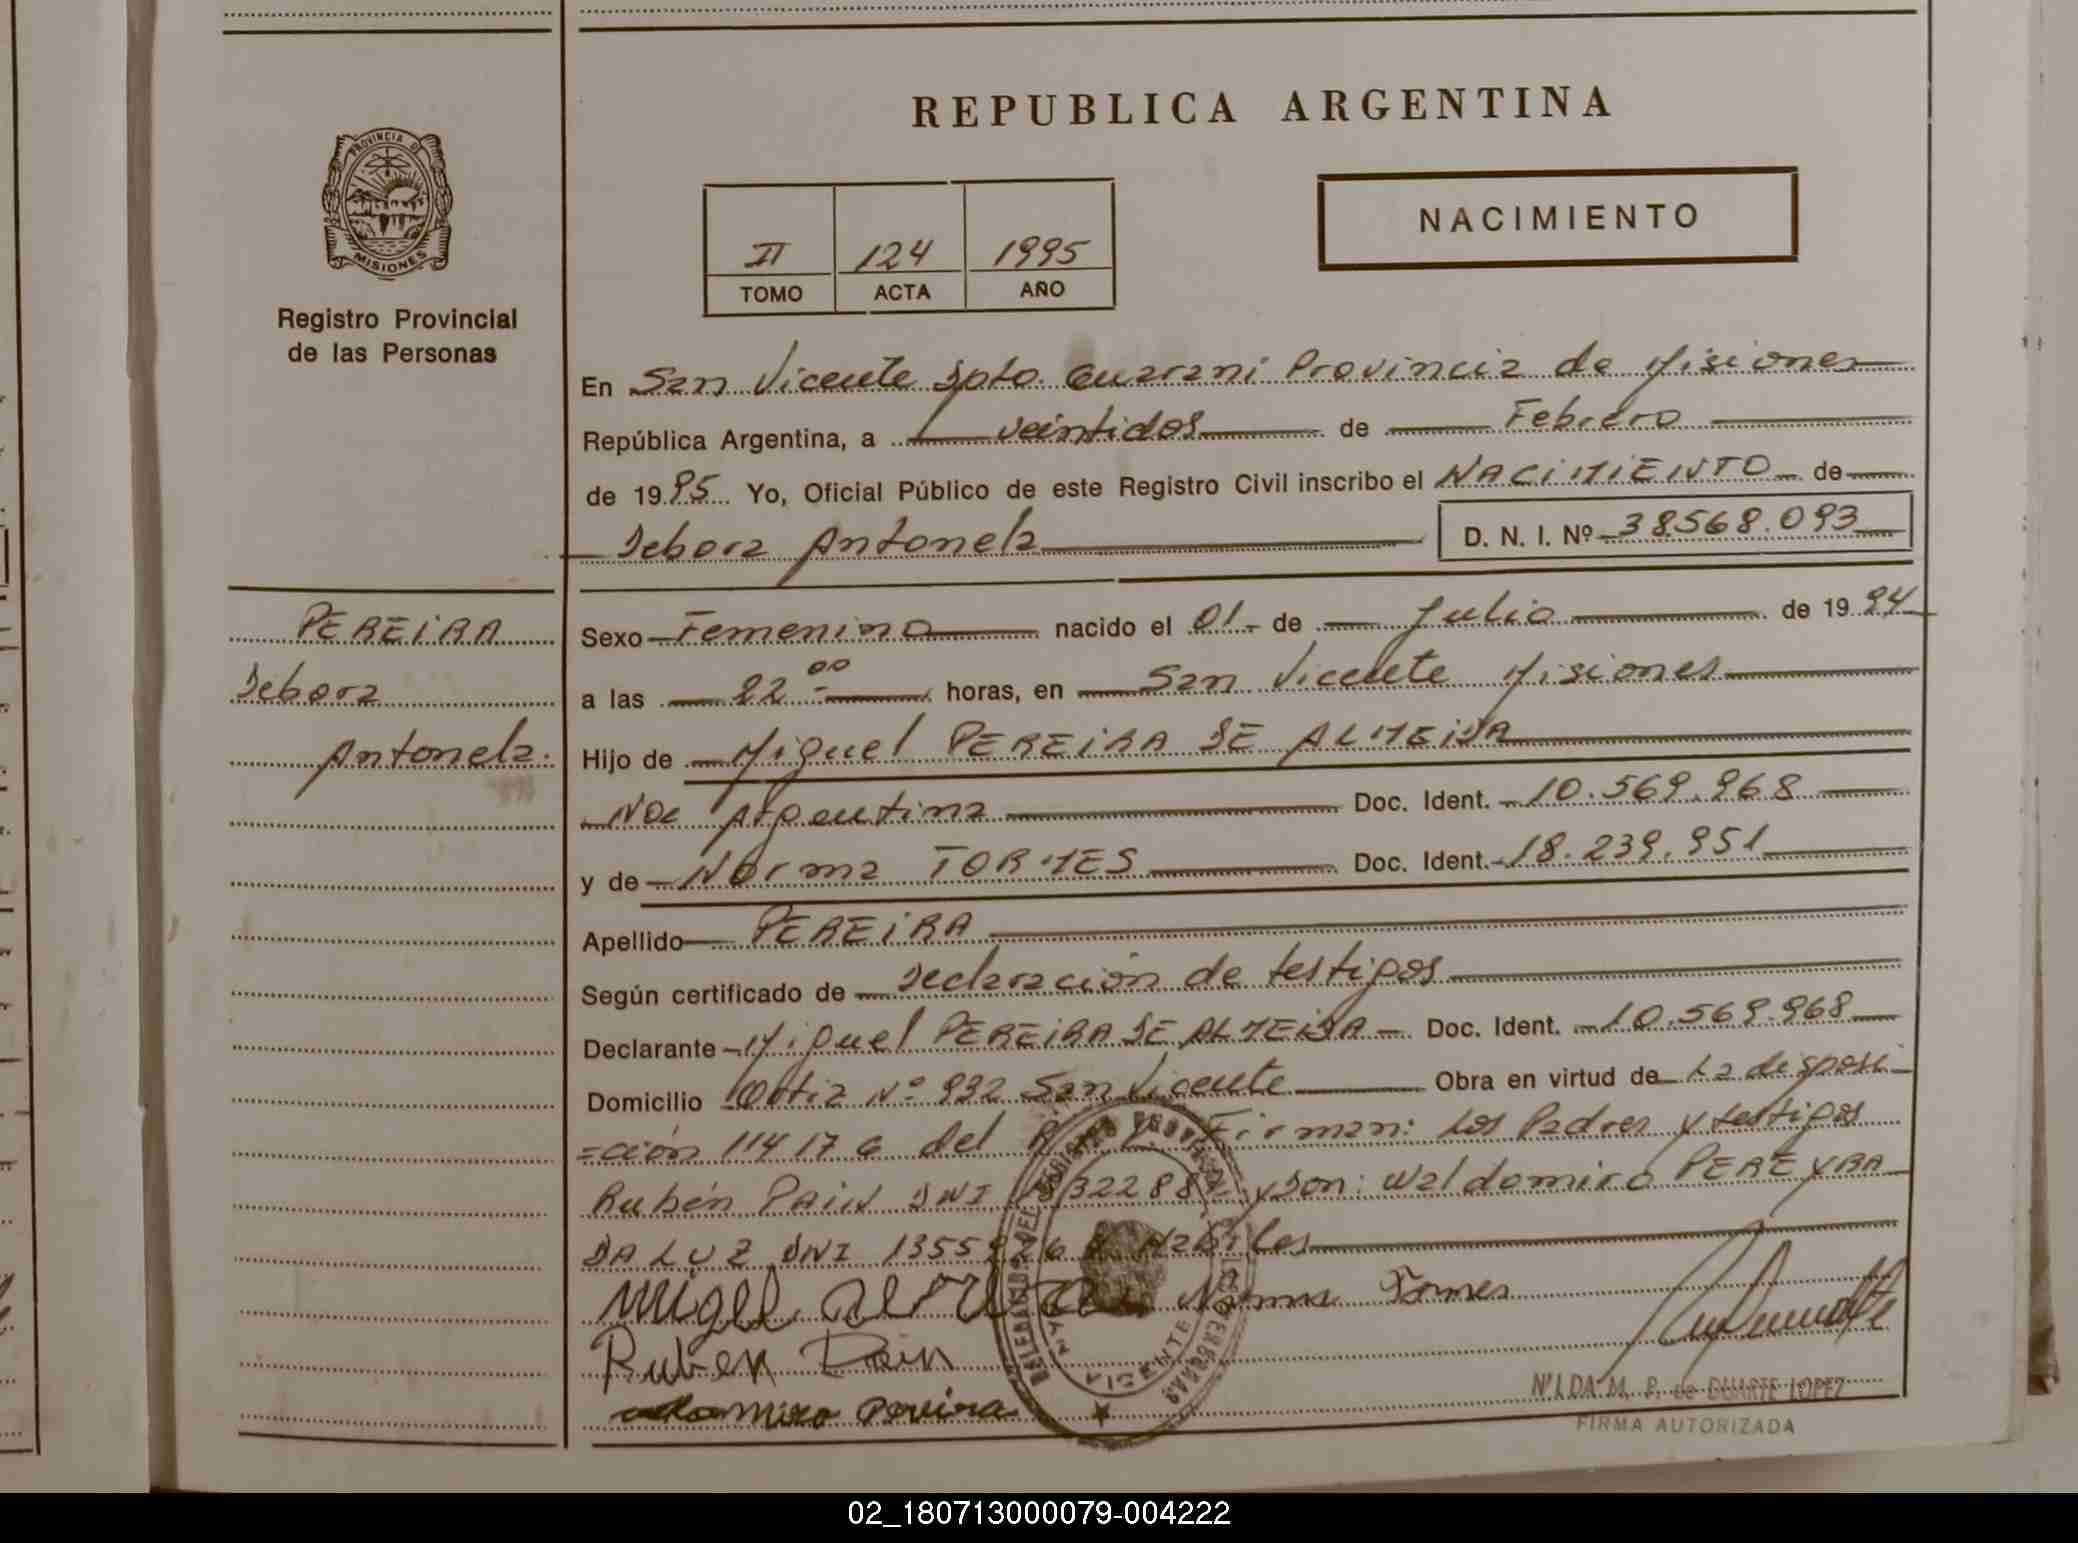 REPUBLICA ARGENTINA
PROVINCIA DE
MISIONES
Registro Provincial
de las Personas
II 124 1995
TOMO ACTA AÑO
NACIMIENTO
En San Vicente Dpto. Guarani Provincia de Misiones
República Argentina, a veintidos de Febrero
de 1995 Yo, Oficial Público de este Registro Civil inscribo el NACIMIENTO de
Debora Antonela D. N. I. Nº 38568.093
PEREIRA
Debora
Antonela.
Sexo Femenino nacido el 01 de Julio de 1994
a las 22 00 horas, en San Vicente Misiones
Hijo de Miguel PEREIRA DE ALMEIDA
Nac Argentina Doc. Ident. 10.569.968
y de Norma TORMES Doc. Ident. 18.239.951
Apellido PEREIRA
Según certificado de Declaración de testigos
Declarante Miguel PEREIRA DE ALMEIDA Doc. Ident. 10.569.968
Domicilio Ortiz Nº 932 San Vicente Obra en virtud de La disposi
=ción 114 17 6 del Firman: Los Padres y testigos
Rubén PAIN DNI y Don: Waldomiro PEREYRA
DA LUZ DNI Habiles
Norma Tormes
Ruben Pain
Pereira
NILDA M. P. de DUARTE LOPEZ
FIRMA AUTORIZADA
02_180713000079-004222